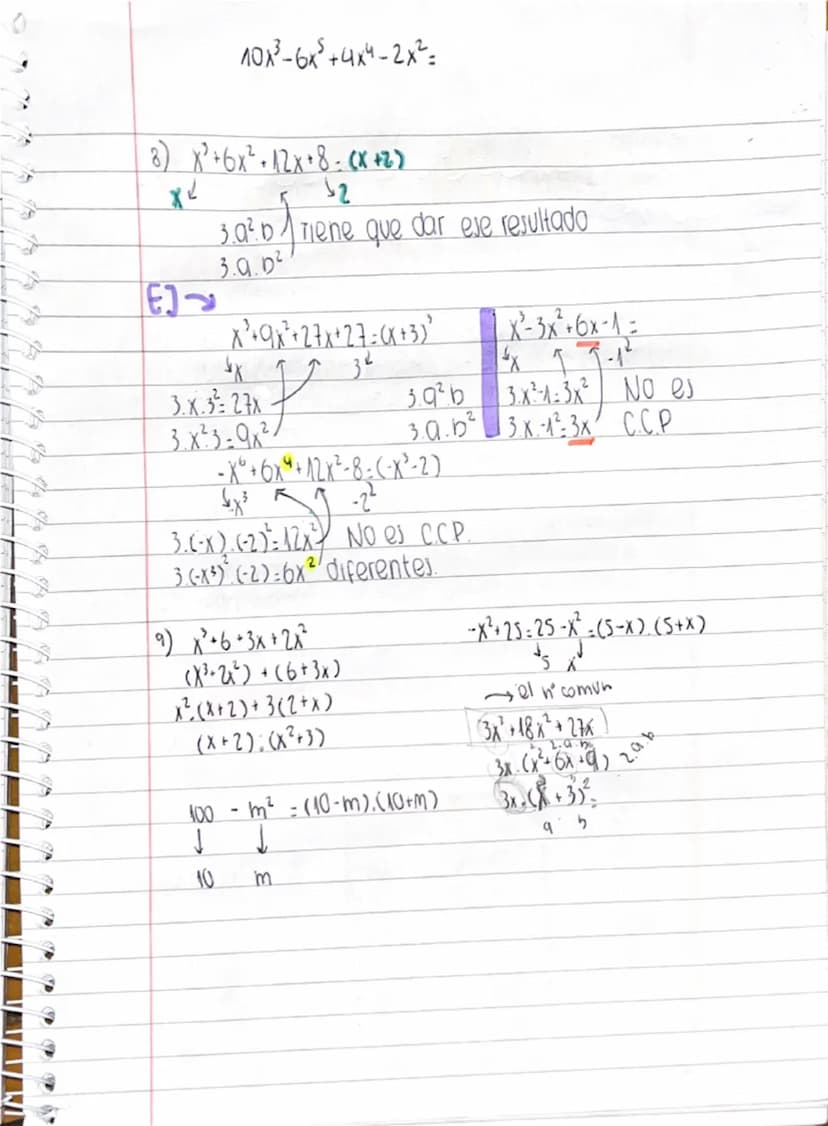 10x³-6x⁵+4x⁴-2x²=
8) x³+6x²+12x+8=(x+2)
x 2
3.a².b Tiene que dar ese resultado
3.a.b²
EJ →
x³+9x²+27x+27=(x+3)³
x 3
3.x.3²=27x
3.x².3=9x²
3.a²b
3.a.b²
x³-3x²+6x-1=
x -1²
3.x²-1=3x² NO es
3x.-1²=3x C.C.P
-x⁶+6x⁴+12x²-8=(-x³-2)
-x³ -2²
3.(-x).(-2)²=12x² NO es C.C.P.
3(-x³)².(-2)=6x² diferentes.
9) x³+6+3x+2x²
(x³+2x²)+(6+3x)
x².(x+2)+3(2+x)
(x+2).(x²+3)
100 - m² =(10-m).(10+m)
10 m
-x²+25=25-x²=(5-x).(5+x)
5 x
→ el n° comun
3x³+18x²+27x
2.a.b
3x.(x²+6x+9) 2.a.b
3x.(x+3)²=
a b